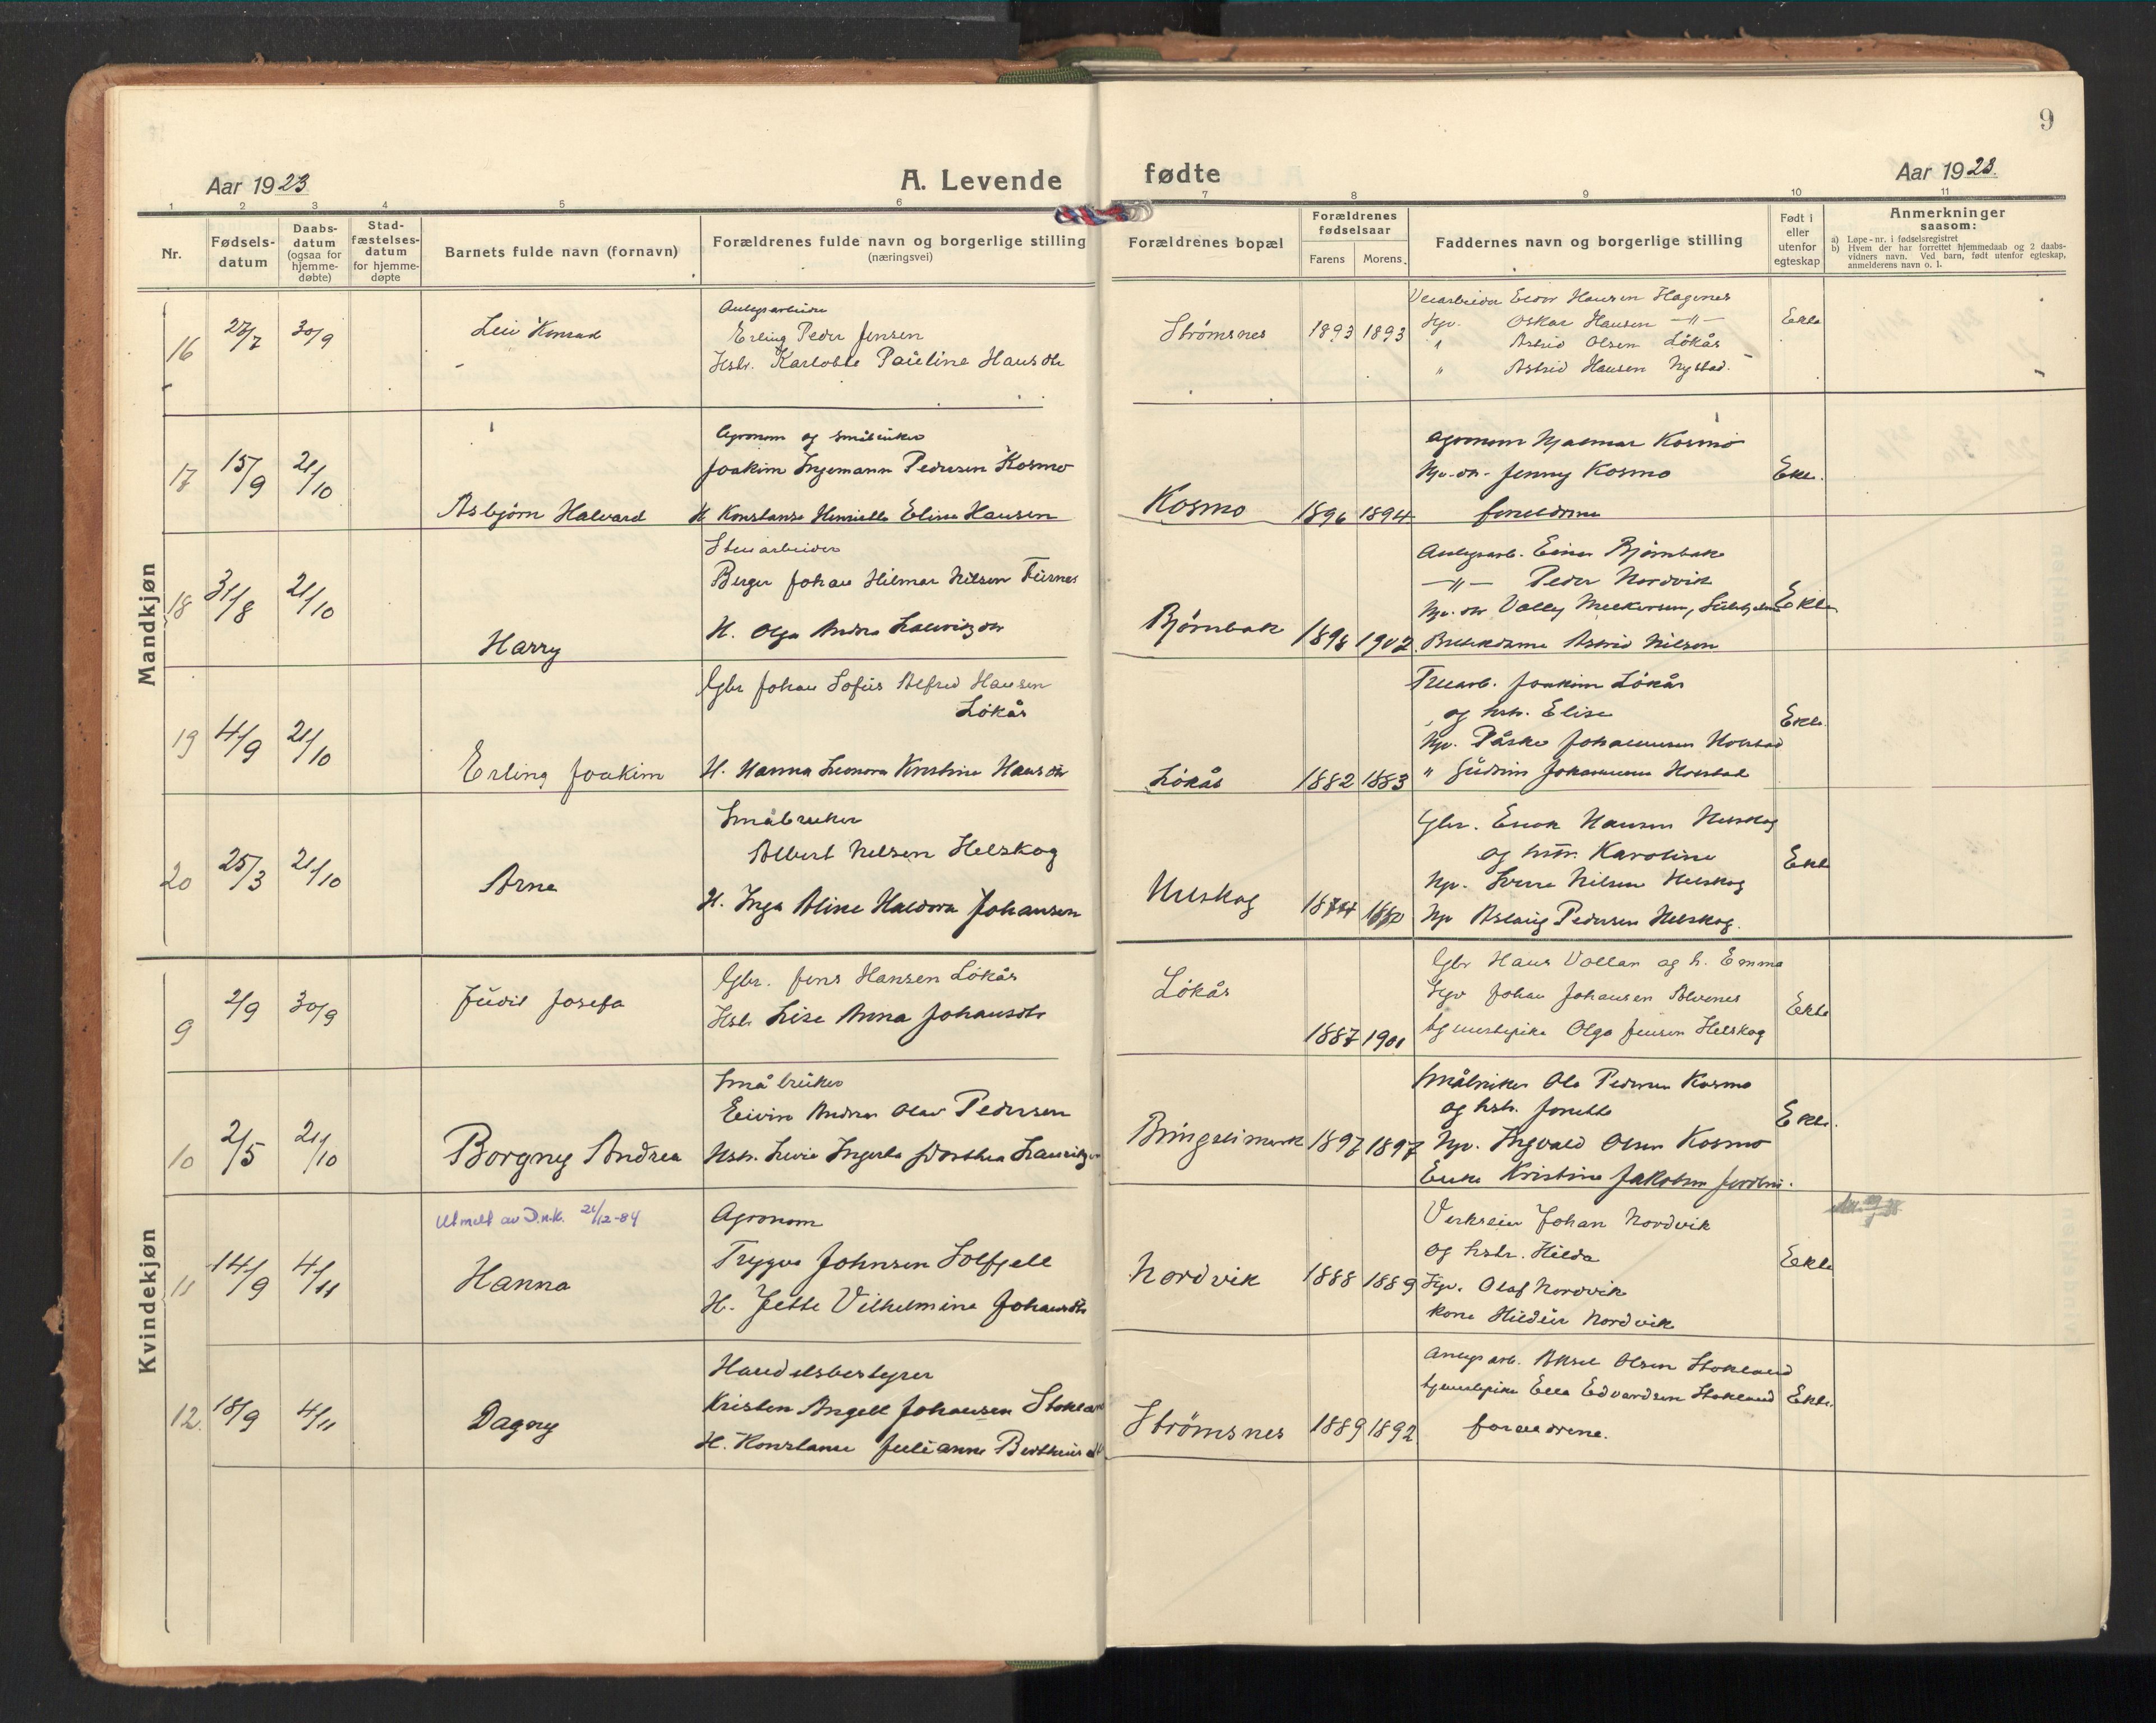 9
Aar 1923
A. Levende
fødte
Aar 1923.
1 2 3 4 5 6 7 8 9 10 11
Nr.
Fødsels-
datum
Daabs-
datum
(ogsaa for
hjemme-
døbte)
Stad-
fæstelses-
datum
for hjemme-
døpte
Barnets fulde navn (fornavn)
Forældrenes fulde navn og borgerlige stilling
(næringsvei)
Forældrenes bopæl
Forældrenes
fødselsaar
Farens Morens
Faddernes navn og borgerlige stilling
Født i
eller
utenfor
egteskap
Anmerkninger
saasom:
a) Løpe-nr. i fødselsregistret
b) Hvem der har forrettet hjemmedaab og 2 daabs-
vidners navn. Ved barn, født utenfor egteskap,
anmelderens navn o. l.
Mandkjøn
16 27/7 30/9 Leiv Konrad
Anlegsarbeider
Erling Peder Jensen
Hstr. Karlotte Pauline Hansdtr
Strømsnes 1893 1893
Veiarbeider Hansen Hagenes
Ugv. Oskar Hansen -"-
" Astrid Olsen Lökås
" Astrid Hansen Nystad.
Ekte
17 15/9 21/10 Asbjørn Halvard
Agronom og småbruker
Joakim Ingemann Pedersen Kosmo
H. Konstanse Henriette Elise Hansen
Kosmo 1896 1894
Agronom Hjalmar Kosmo
Jenny Kosmo
foreldrene
Ekte.
18 31/8 21/10 Harry
Stenarbeider
Berger Johan Hilmar Nilsen
H. Olga Andrea
Bjørnbak 1898 1902
Anlegsarb. Einar Bjørnbak
-"- Peder Nordvik
Astrid Nilsen
Ekte
19 4/9 21/10 Erling Joakim
Gbr Johan Sofus Alfred Hansen
Lökås
H. Hanna Leonora Kristine Hansdtr
Lökås 1882 1883
Joakim Lökås
og hstr. Elise
Johannesen
" Gudrun Johannesen
Ekte.
20 25/3 21/10 Arne
Småbruker
Albert Nilsen Helskog
H. Inga Aline Haldora Johansen
Helskog 1874 1880
Gbr. Hansen Helskog
og hstr. Karoline
Ugv. Sverre Nilsen Helskog
Ugv Aslaug Pedersen Helskog.
Ekte
Kvindekjøn
9 2/9 30/9 Judit Josefa
Gbr. Jens Hansen Lökås
Hstr Lise Anna Johansdtr
Lökås 1887 1901
Gbr Hans Vollan og h. Emma
Ugv Johan Johansen Alvenes
tjenestepike Olga Jensen Helskog
Ekte
10 2/5 21/10 Borgny Andrea
Småbruker
Eivin Andreas Olav Pedersen
Hstr.
1897 1897
Småbruker Ole Pedersen Kosmo
og hstr. Jonette
Ugv. Ingvald Olsen Kosmo
Enke Kristine Jakobsen
Ekte.
Utmelt av D.n.K. 21/12-84
11 14/9 4/11 Hanna
Agronom
Trygve Johnsen Solfjell
H. Jette Vilhelmine Johansdtr
Nordvik 1888 1889
Johan Nordvik
og hstr. Hilda
Ugv. Olaf Nordvik
kone Hildur Nordvik
Ekte
12. 18/9 4/11 Dagny
Handelsbestyrer
Kristen Angell Johansen Stokland
H. Konstanse Julianne
Strømsnes 1889 1892
Anlegsarb. Aksel Olsen Stokland
tjenestepike Ella Edvardsen Stokland
foreldrene.
Ekte.